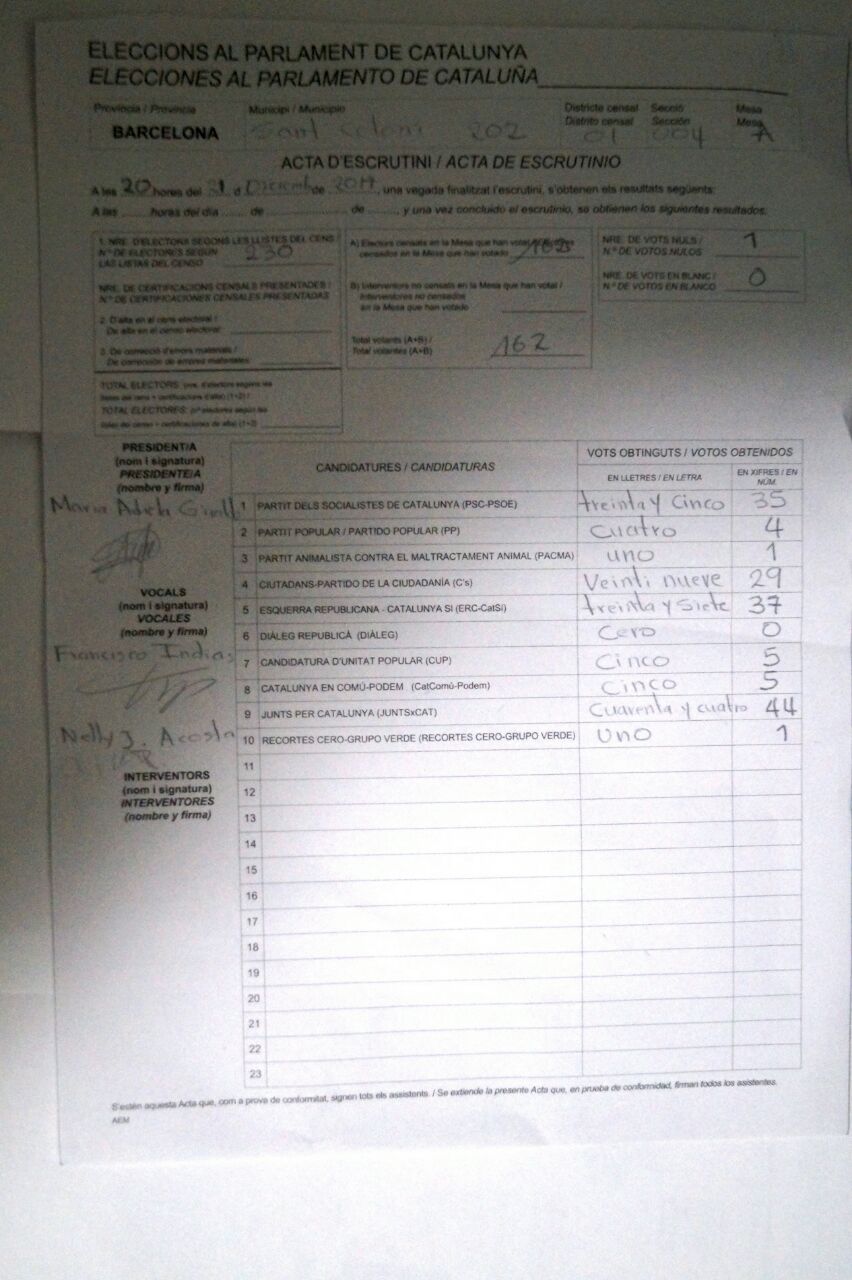 ELECCIONS AL PARLAMENT DE CATALUNYA
ELECCIONES AL PARLAMENTO DE CATALUÑA
Provincia / Provincia Municipi / Municipio Districte censal Secció Mesa
Distrito censal Sección Mesa
BARCELONA Sant 202 01 004 A
ACTA D'ESCRUTINI / ACTA DE ESCRUTINIO
A les 20 hores del 21 d de 2017, una vegada finalitzat l'escrutini, s'obtenen els resultats següents:
A las ........ horas del día ....... de ........................ de ........, y una vez concluido el escrutinio, se obtienen los siguientes resultados.
1. NRE. D'ELECTORS SEGONS LES LLISTES DEL CENS /
Nº DE ELECTORES SEGÚN
LAS LISTAS DEL CENSO
230
NRE. DE CERTIFICACIONS CENSALS PRESENTADES /
Nº DE CERTIFICACIONES CENSALES PRESENTADAS
2. D'alta en el cens electoral /
De alta en el censo electoral
3. De correcció d'errors materials /
De corrección de errores materiales
TOTAL ELECTORS: (nre. d'electors segons les
llistes del cens + certificacions d'alta) (1+2) /
TOTAL ELECTORES: (nº electores según las
listas del censo + certificaciones de alta) (1+2)
A) Electors censats en la Mesa que han votat / Electores
censados en la Mesa que han votado
162
B) Interventors no censats en la Mesa que han votat /
Interventores no censados
en la Mesa que han votado
Total votants (A+B) /
Total votantes (A+B)
162
NRE. DE VOTS NULS /
N.º DE VOTOS NULOS
1
NRE. DE VOTS EN BLANC /
N.º DE VOTOS EN BLANCO
0
PRESIDENT/A
(nom i signatura)
PRESIDENTE/A
(nombre y firma)
Maria Adela
VOCALS
(nom i signatura)
VOCALES
(nombre y firma)
Francisco Indias
Nelly J. Acosta
INTERVENTORS
(nom i signatura)
INTERVENTORES
(nombre y firma)
CANDIDATURES / CANDIDATURAS VOTS OBTINGUTS / VOTOS OBTENIDOS
EN LLETRES / EN LETRA EN XIFRES / EN NÚM.
1 PARTIT DELS SOCIALISTES DE CATALUNYA (PSC-PSOE) treinta y cinco 35
2 PARTIT POPULAR / PARTIDO POPULAR (PP) cuatro 4
3 PARTIT ANIMALISTA CONTRA EL MALTRACTAMENT ANIMAL (PACMA) uno 1
4 CIUTADANS-PARTIDO DE LA CIUDADANÍA (C's) Veinti nueve 29
5 ESQUERRA REPUBLICANA - CATALUNYA SÍ (ERC-CatSí) treinta y siete 37
6 DIÀLEG REPUBLICÀ (DIÀLEG) Cero 0
7 CANDIDATURA D'UNITAT POPULAR (CUP) Cinco 5
8 CATALUNYA EN COMÚ-PODEM (CatComú-Podem) Cinco 5
9 JUNTS PER CATALUNYA (JUNTSxCAT) Cuarenta y cuatro 44
10 RECORTES CERO-GRUPO VERDE (RECORTES CERO-GRUPO VERDE) uno 1
11
12
13
14
15
16
17
18
19
20
21
22
23
S'estén aquesta Acta que, com a prova de conformitat, signen tots els assistents. / Se extiende la presente Acta que, en prueba de conformidad, firman todos los asistentes.
AEM